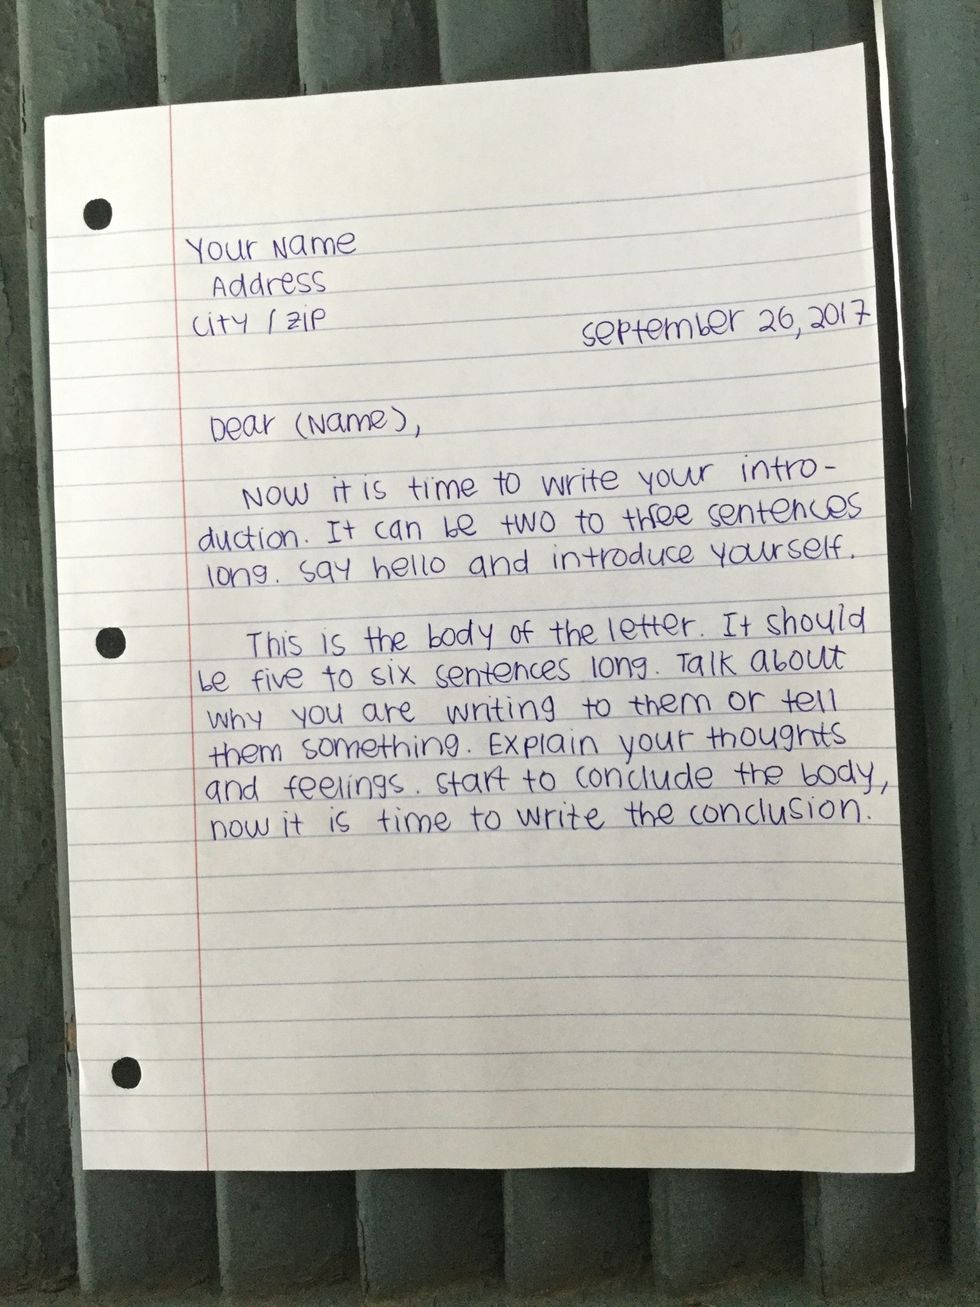 Your Name
Address
City / Zip
September 26, 2017
Dear (Name),
Now it is time to write your intro-
duction. It can be two to three sentences
long. Say hello and introduce yourself.
This is the body of the letter. It should
be five to six sentences long. Talk about
why you are writing to them or tell
them something. Explain your thoughts
and feelings. Start to conclude the body,
now it is time to write the conclusion.